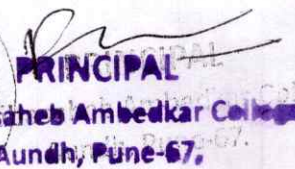 PRINCIPAL
saheb Ambedkar College
Aundh, Pune-67.